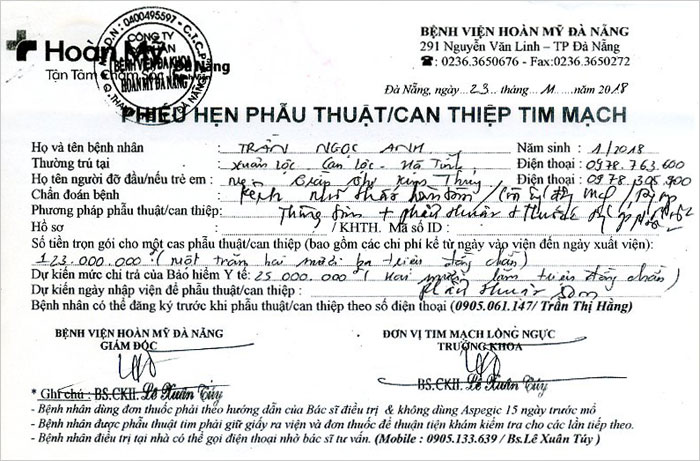 M.S.D.N: 0400495597 - C.T.C.P
CÔNG TY
BỆNH VIỆN ĐA KHOA
HOÀN MỸ ĐÀ NẴNG
Hoàn Mỹ
Đà Nẵng
Tận Tâm Chăm Sóc
BỆNH VIỆN HOÀN MỸ ĐÀ NẴNG
291 Nguyễn Văn Linh – TP Đà Nẵng
☎: 0236.3650676 - Fax:0236.3650272
Đà Nẵng, ngày 23 tháng 11 năm 2018
PHIẾU HẸN PHẪU THUẬT/CAN THIỆP TIM MẠCH
Họ và tên bệnh nhân : TRẦN NGỌC ANH Năm sinh : 1/2018
Thường trú tại : Xuân Lộc Can Lộc - Hà Tĩnh Điện thoại : 0978.763.600
Họ tên người đỡ đầu/nếu trẻ em : Mẹ Thúy Điện thoại : 0978.
Chẩn đoán bệnh :
Phương pháp phẫu thuật/can thiệp: Thông tim + phẫu thuật + thuốc
Hồ sơ : / KHTH. Mã số ID :
Số tiền trọn gói cho một cas phẫu thuật/can thiệp (bao gồm các chi phí kể từ ngày vào viện đến ngày xuất viện):
123.000.000 (Một trăm hai mươi ba triệu đồng chẵn)
Dự kiến mức chi trả của Bảo hiểm Y tế: 25.000.000 (Hai mươi lăm triệu đồng chẵn)
Dự kiến ngày nhập viện để phẫu thuật/can thiệp : phẫu thuật sớm
Bệnh nhân có thể đăng ký trước khi phẫu thuật/can thiệp theo số điện thoại (0905.061.147/ Trần Thị Hằng)
BỆNH VIỆN HOÀN MỸ ĐÀ NẴNG
GIÁM ĐỐC
BS.CKII. Lê Xuân Túy
ĐƠN VỊ TIM MẠCH LỒNG NGỰC
TRƯỞNG KHOA
BS.CKII. Lê Xuân Túy
* Ghi chú :
- Bệnh nhân dùng đơn thuốc phải theo hướng dẫn của Bác sĩ điều trị & không dùng Aspegic 15 ngày trước mổ
- Bệnh nhân được phẫu thuật tim phải giữ giấy ra viện và đơn thuốc để thuận tiện khám kiểm tra cho các lần tiếp theo.
- Bệnh nhân điều trị tại nhà có thể gọi điện thoại nhờ bác sĩ tư vấn. (Mobile : 0905.133.639 / Bs.Lê Xuân Túy )